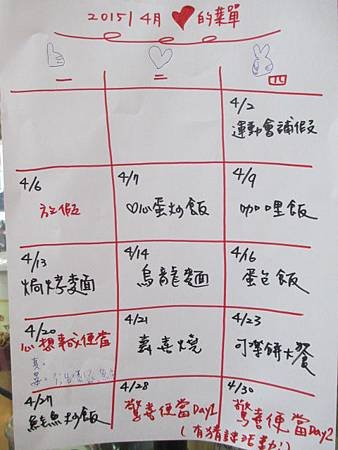 2015/4月❤的菜單
一 二 四
4/2
運動會補假
4/6 4/7 4/9
放假 心蛋炒飯 咖哩飯
4/13 4/14 4/16
焗烤麵 烏龍麵 蛋包飯
4/20 4/21 4/23
心想事成便當 壽喜燒 可樂餅大餐
4/27 4/28 4/30
鮭魚炒飯 驚喜便當Day1 驚喜便當Day2
(有猜謎活動!)